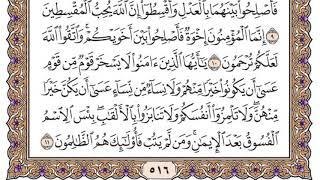 فَأَصْلِحُوا۟ بَيْنَهُمَا بِٱلْعَدْلِ وَأَقْسِطُوٓا۟ إِنَّ ٱللَّهَ يُحِبُّ ٱلْمُقْسِطِينَ
٩ إِنَّمَا ٱلْمُؤْمِنُونَ إِخْوَةٌ فَأَصْلِحُوا۟ بَيْنَ أَخَوَيْكُمْ وَٱتَّقُوا۟ ٱللَّهَ
لَعَلَّكُمْ تُرْحَمُونَ ١٠ يَٰٓأَيُّهَا ٱلَّذِينَ ءَامَنُوا۟ لَا يَسْخَرْ قَوْمٌ مِّن قَوْمٍ
عَسَىٰٓ أَن يَكُونُوا۟ خَيْرًا مِّنْهُمْ وَلَا نِسَآءٌ مِّن نِّسَآءٍ عَسَىٰٓ أَن يَكُنَّ خَيْرًا
مِّنْهُنَّ وَلَا تَلْمِزُوٓا۟ أَنفُسَكُمْ وَلَا تَنَابَزُوا۟ بِٱلْأَلْقَٰبِ بِئْسَ ٱلِٱسْمُ
ٱلْفُسُوقُ بَعْدَ ٱلْإِيمَٰنِ وَمَن لَّمْ يَتُبْ فَأُو۟لَٰٓئِكَ هُمُ ٱلظَّٰلِمُونَ ١١
٥١٦